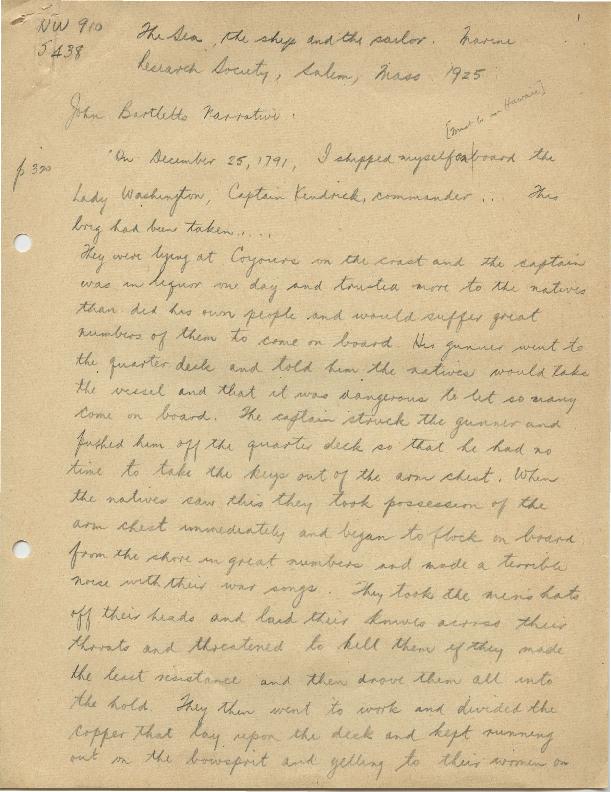 1
NW 910
5438
The Sea, the ship and the sailor. Marine
Research Society, Salem, Mass 1925
John Bartletts Narrative.
[must be in Hawaii]
p 320
"On December 25, 1791, I shipped myself on board the
Lady Washington, Captain Kendrick, commander... This
brig had been taken....
They were lying at Coyours on the coast and the captain
was in liquor on day and trusted more to the natives
than did his own people and would suffer great
numbers of them to come on board. His gunner went to
the quarter deck and told him the natives would take
the vessel and that it was dangerous to let so many
come on board. The captain struck the gunner and
pushed him off the quarter deck so that he had no
time to take the keys out of the arm chest. When
the natives saw this they took possession of the
arm chest immediately and began to flock on board
from the shore in great numbers and made a terrible
noise with their war songs. They took the men's hats
off their heads and laid their knives across their
throats and threatened to kill them if they made
the least resistance and then drove them all into
the hold. They then went to work and divided the
copper that lay upon the deck and kept running
out on the bowsprit and yelling to their women on